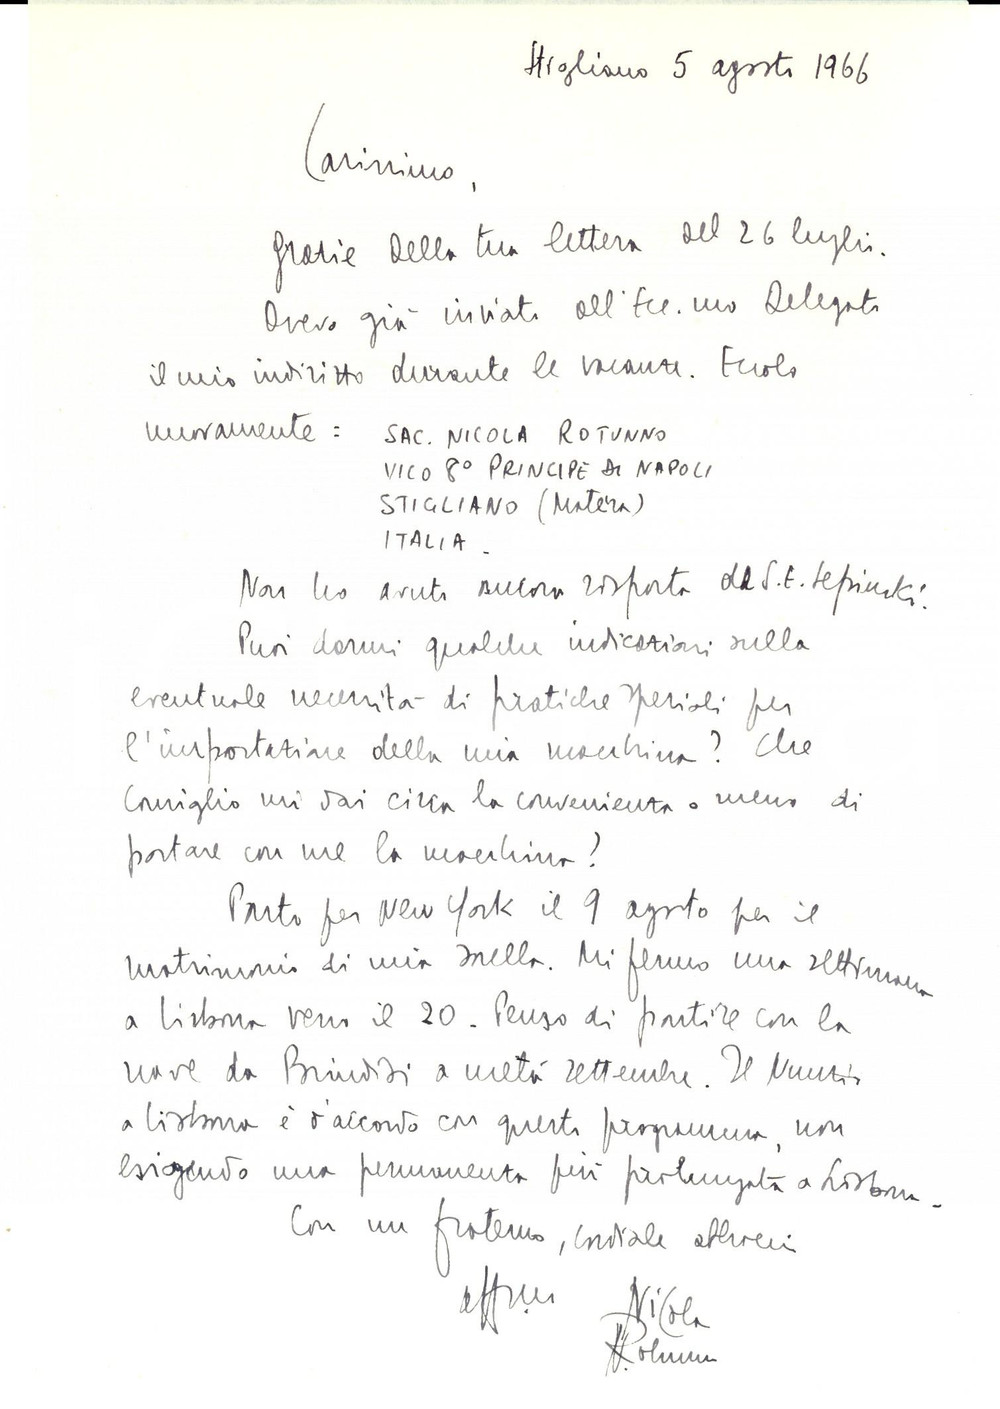 Stigliano 5 agosto 1966
Carissimo,
grazie della tua lettera del 26 luglio.
Avevo già inviato all'Ecc.mo Delegato
il mio indirizzo durante le vacanze. Eccolo
nuovamente :
SAC. NICOLA ROTUNNO
VICO 8° PRINCIPE DI NAPOLI
STIGLIANO (Matera)
ITALIA.
Non ho avuto ancora risposta da S.E. Sepinski.
Puoi darmi qualche indicazioni sulla
eventuale necessità di pratiche speciali per
l'importazione della mia macchina? Che
consiglio mi dai circa la convenienza o meno di
portare con me la macchina?
Parto per New York il 9 agosto per il
matrimonio di mia sorella. Mi fermo una settimana
a Lisbona verso il 20. Penso di partire con la
nave da Brindisi a metà settembre. Il Nunzio
a Lisbona è d'accordo con questo programma, non
esigendo una permanenza più prolungata a Lisbona.
Con un fraterno, cordiale abbraccio
aff.mo Nicola
Rotunno